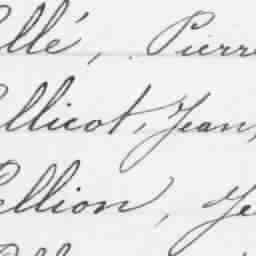 llé, Pierre
ellicot, Jean,
ellion, Je